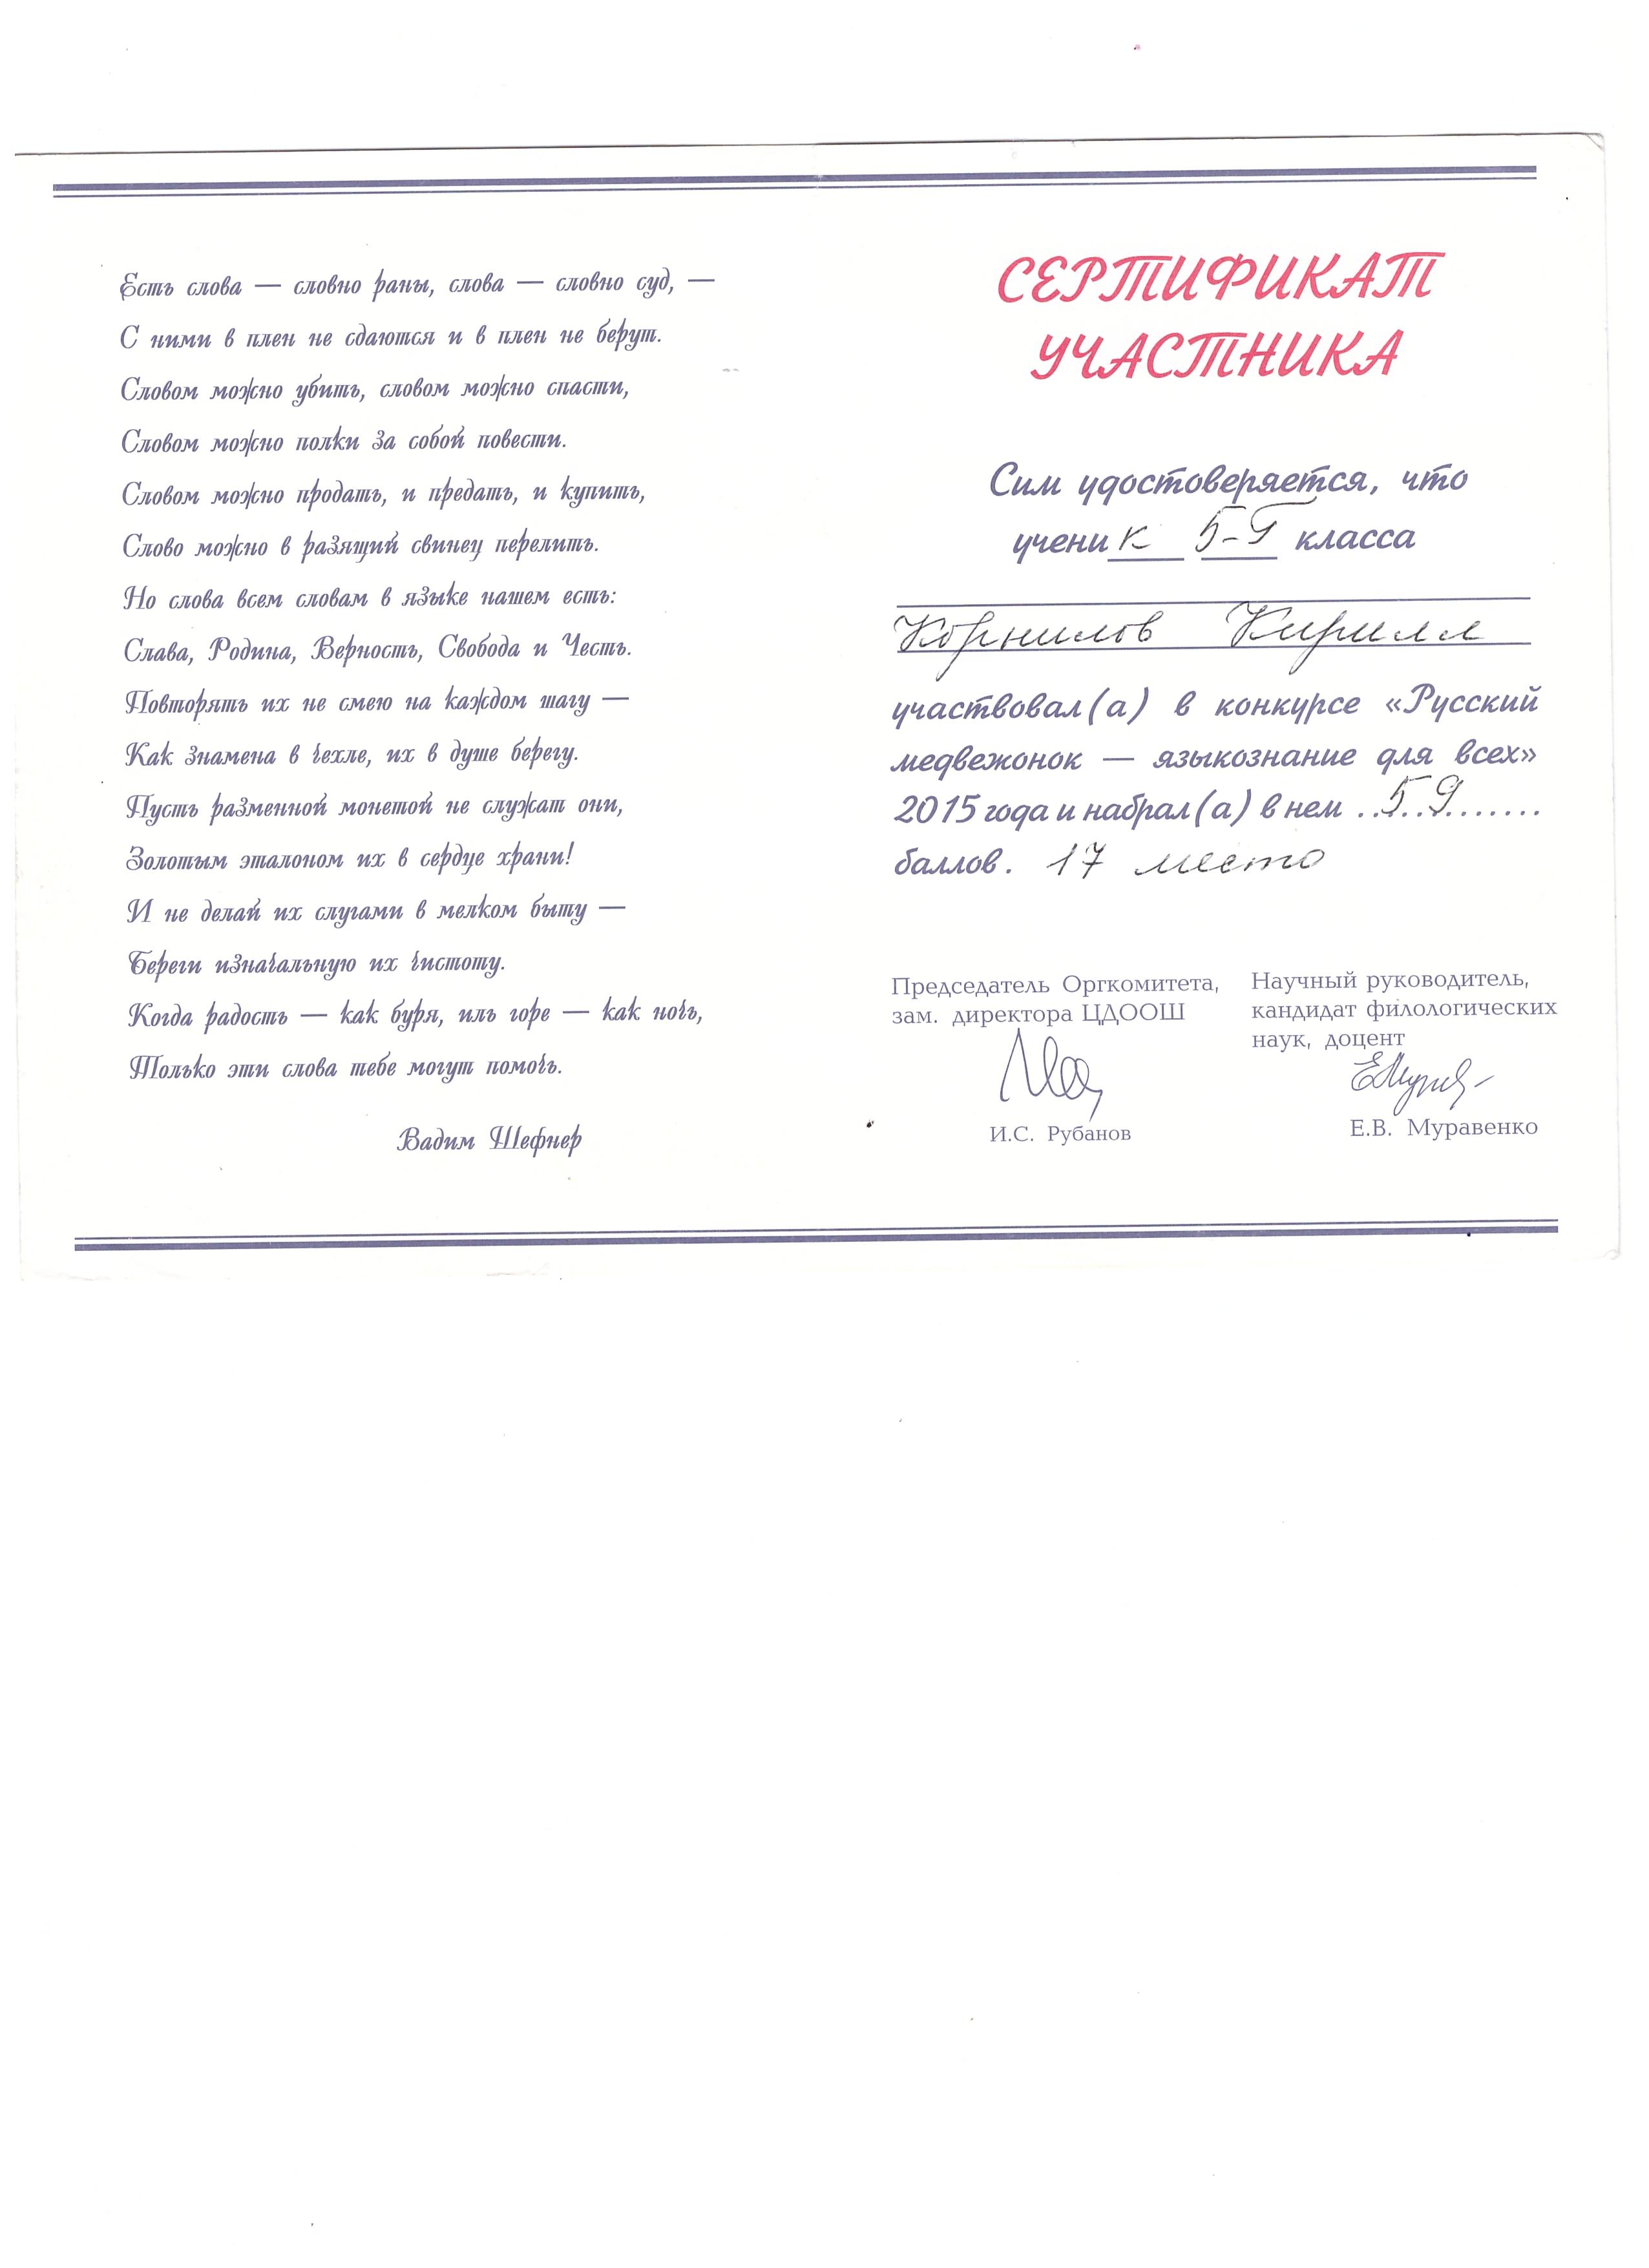 Есть слова — словно раны, слова — словно суд, —
С ними в плен не сдаются и в плен не берут.
Словом можно убить, словом можно спасти,
Словом можно полки за собой повести.
Словом можно продать, и предать, и купить,
Слово можно в разящий свинец перелить.
Но слова всем словам в языке нашем есть:
Слава, Родина, Верность, Свобода и Честь.
Повторять их не смею на каждом шагу —
Как знамена в чехле, их в душе берегу.
Пусть разменной монетой не служат они,
Золотым эталоном их в сердце храни!
И не делай их слугами в мелком быту —
Береги изначальную их чистоту.
Когда радость — как буря, иль горе — как ночь,
Только эти слова тебе могут помочь.
Вадим Шефнер
СЕРТИФИКАТ
УЧАСТНИКА
Сим удостоверяется, что
ученик 5-Г класса
Корнилов Кирилл
участвовал(а) в конкурсе «Русский
медвежонок — языкознание для всех»
2015 года и набрал(а) в нем ..59.......
баллов. 17 место
Председатель Оргкомитета,
зам. директора ЦДООШ
И.С. Рубанов
Научный руководитель,
кандидат филологических
наук, доцент
Е.В. Муравенко